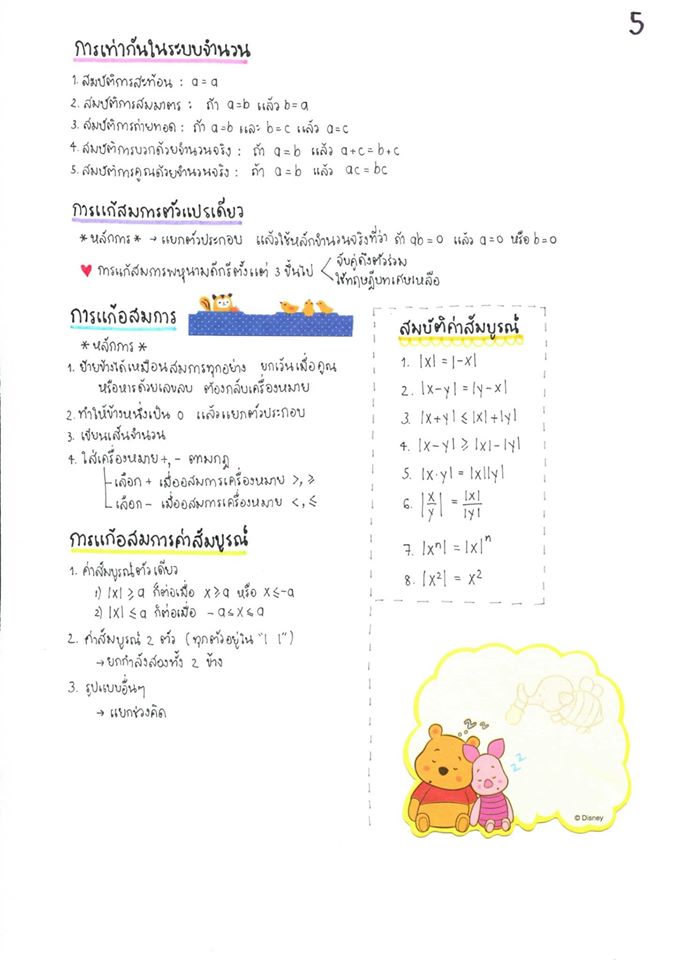 5
การเท่ากันในระบบจำนวน
1. สมบัติการสะท้อน : a = a
2. สมบัติการสมมาตร : ถ้า a=b แล้ว b=a
3. สมบัติการถ่ายทอด : ถ้า a=b และ b=c แล้ว a=c
4. สมบัติการบวกด้วยจำนวนจริง : ถ้า a=b แล้ว a+c=b+c
5. สมบัติการคูณด้วยจำนวนจริง : ถ้า a=b แล้ว ac=bc
การแก้สมการตัวแปรเดียว
*หลักการ* → แยกตัวประกอบ แล้วใช้หลักจำนวนจริงที่ว่า ถ้า ab=0 แล้ว a=0 หรือ b=0
♥ การแก้สมการพหุนามดีกรีตั้งแต่ 3 ขึ้นไป
จับคู่ดึงตัวร่วม
ใช้ทฤษฎีบทเศษเหลือ
การแก้อสมการ
*หลักการ*
1. ย้ายข้างได้เหมือนสมการทุกอย่าง ยกเว้นเมื่อคูณ
หรือหารด้วยเลขลบ ต้องกลับเครื่องหมาย
2. ทำให้ข้างหนึ่งเป็น 0 แล้วแยกตัวประกอบ
3. เขียนเส้นจำนวน
4. ใส่เครื่องหมาย +, - ตามกฎ
เลือก + เมื่ออสมการเครื่องหมาย >, ≥
เลือก - เมื่ออสมการเครื่องหมาย <, ≤
การแก้อสมการค่าสัมบูรณ์
1. ค่าสัมบูรณ์ตัวเดียว
1) |x| ≥ a ก็ต่อเมื่อ x ≥ a หรือ x ≤ -a
2) |x| ≤ a ก็ต่อเมื่อ -a ≤ x ≤ a
2. ค่าสัมบูรณ์ 2 ตัว (ทุกตัวอยู่ใน "| |")
→ ยกกำลังสองทั้ง 2 ข้าง
3. รูปแบบอื่นๆ
→ แยกช่วงคิด
สมบัติค่าสัมบูรณ์
1. |x| = |-x|
2. |x-y| = |y-x|
3. |x+y| ≤ |x|+|y|
4. |x-y| ≥ |x|-|y|
5. |x·y| = |x||y|
6. |x/y| = |x|/|y|
7. |xⁿ| = |x|ⁿ
8. |x²| = x²
z z z
z z
© Disney